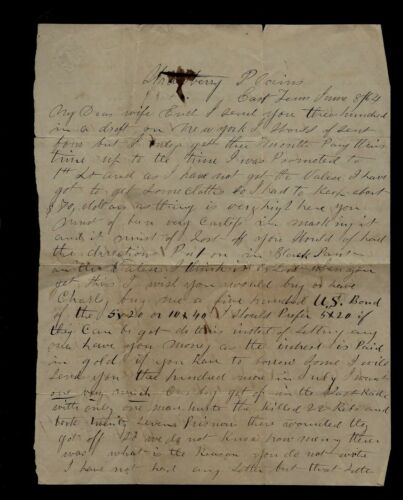 Strawberry Plains
East Tenn June 8/64
My Dear wife Encl I send you three hundred
in a draft on New York I Should of sent
more but I only get three Months Pay this
time up to the time I was Promoted to
1st Lt and as I have not got the Valise I have
got to get some cloths so I had to Keep about
$70, dollars as thing is very high here you
must of been very careful in marking it
and it must of Lost off you Should of had
the directions Put on in Black Paint
on the Valise I think it is Lost When you
get this I wish you would buy or have
Charly buy me a five hundred U.S. Bond
of the 5x20 or 10x40 I Should Prefer 5x20 if
they Can be got do this instet of Letting any
one have your Money as the intrest is Paid
in gold if you have to borrow Some I will
send you three hundred more in July I want
one very much Our boys got off in the Last Raid
with only one man hurt the killed 22 Rebs and
took twenty Seven Prisners there wounded they
got off so we do not know how many there
was what is the Reason you do not wrote
I have not had any Letter but that Late